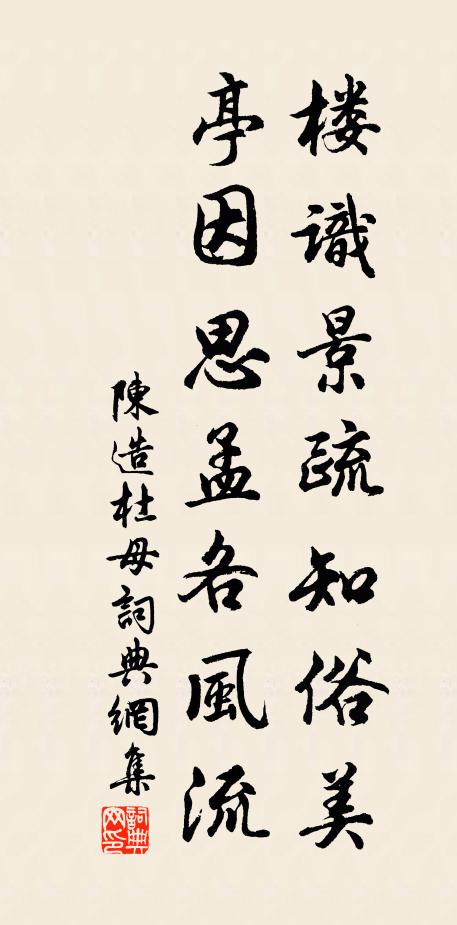 楼識景疏知俗美
亭因思孟各風流
陳造杜母詞典網集
詞典
网印